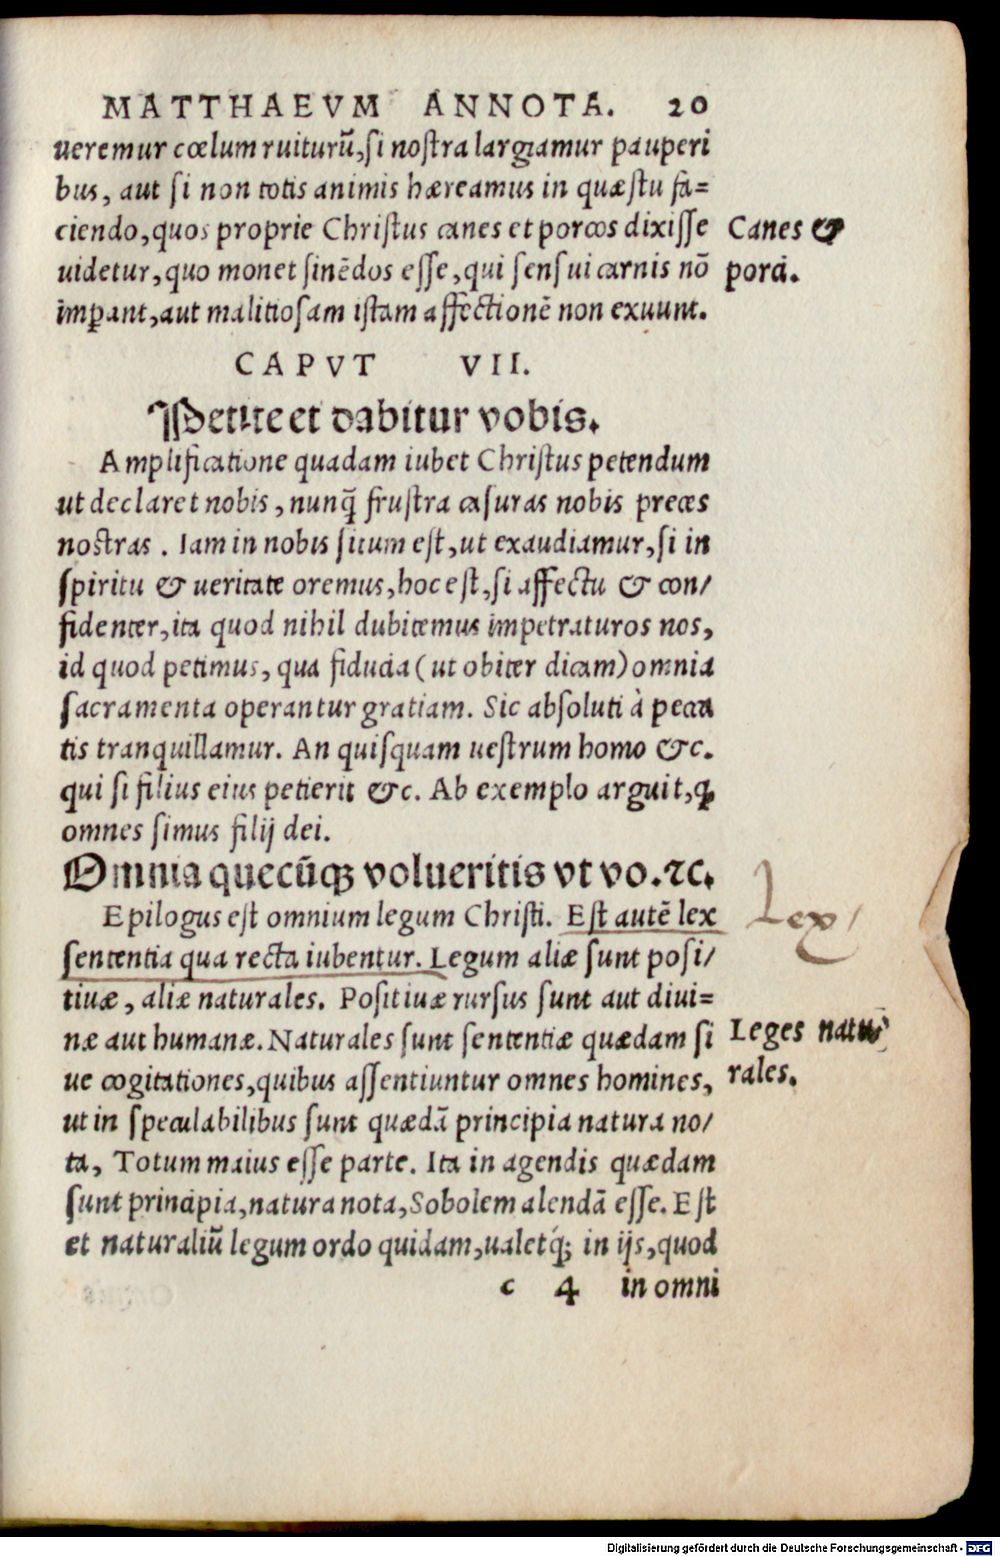 MATTHAEVM ANNOTA. 20
ueremur cœlum ruiturũ, si nostra largiamur pauperi
bus, aut si non totis animis hæreamus in quæstu fa=
ciendo, quos proprie Christus canes et porcos dixisse
uidetur, quo monet sinẽdos esse, qui sensui carnis nõ
imꝑant, aut malitiosam istam affectionẽ non exuunt.
Canes &
porci.
CAPVT VII.
Petite et dabitur vobis.
Amplificatione quadam iubet Christus petendum
ut declaret nobis, nunq̃ frustra casuras nobis preces
nostras. Iam in nobis situm est, ut exaudiamur, si in
spiritu & ueritate oremus, hoc est, si affectu & con/
fidenter, ita quod nihil dubitemus impetraturos nos,
id quod petimus, qua fiducia (ut obiter dicam) omnia
sacramenta operantur gratiam. Sic absoluti à pecca
tis tranquillamur. An quisquam uestrum homo &c.
qui si filius eius petierit &c. Ab exemplo arguit, ꝙ
omnes simus filij dei.
Omnia quecũqꝫ volueritis vt vo. ⁊c.
Epilogus est omnium legum Christi. Est autẽ lex
sententia qua recta iubentur. Legum aliæ sunt posi/
tiuæ, aliæ naturales. Positiuæ rursus sunt aut diui=
næ aut humanæ. Naturales sunt sententiæ quædam si
ue cogitationes, quibus assentiuntur omnes homines,
ut in speculabilibus sunt quædã principia natura no/
ta, Totum maius esse parte. Ita in agendis quædam
sunt principia, natura nota, Sobolem alendã esse. Est
et naturaliũ legum ordo quidam, ualetq́ꝫ in ijs, quod
Lex
Leges natu
rales.
c 4 in omni
Digitalisierung gefördert durch die Deutsche Forschungsgemeinschaft - DFG